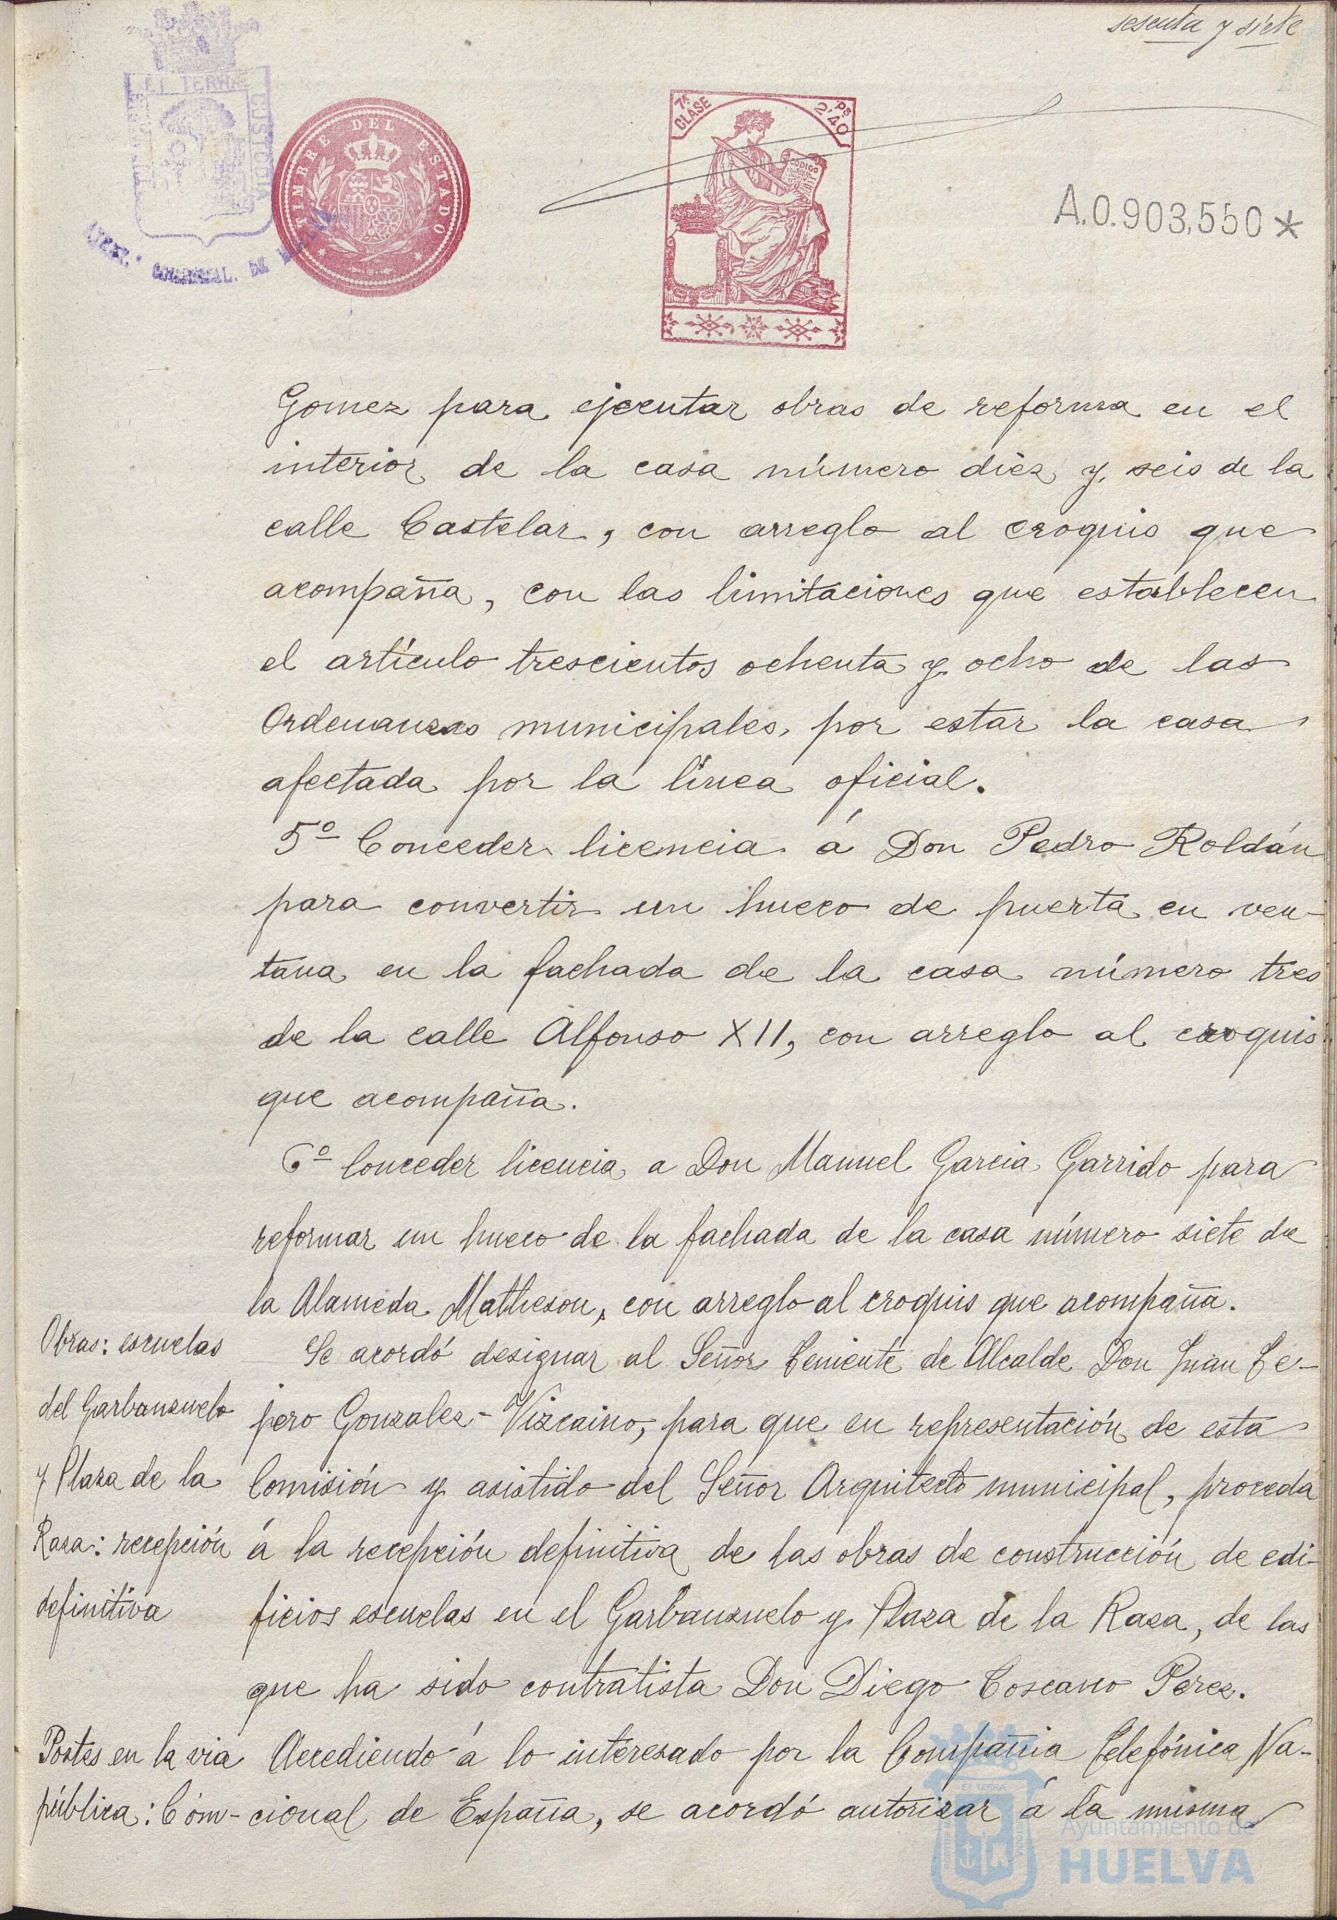 sesenta y siete
TIMBRE DEL ESTADO
7ª CLASE
2'40
CODIGO
A.0.903,550*
Gomez para ejecutar obras de reforma en el
interior de la casa número diez y seis de la
calle Castelar, con arreglo al croquis que
acompaña, con las limitaciones que establecen
el artículo trescientos ochenta y ocho de las
Ordenanzas municipales, por estar la casa
afectada por la línea oficial.
5º Conceder licencia á Don Pedro Roldán
para convertir un hueco de puerta en ven-
tana en la fachada de la casa número tres
de la calle Alfonso XII, con arreglo al croquis
que acompaña.
6º Conceder licencia a Don Manuel Garcia Garrido para
reformar un hueco de la fachada de la casa número siete de
la Alameda Matheson, con arreglo al croquis que acompaña.
Obras: escuelas
del Garbanzuelo
y Plaza de la
Raza: recepción
definitiva
Se acordó designar al Señor Teniente de Alcalde Don Juan Te-
jero Gonzalez-Vizcaino, para que en representación de esta
Comisión y asistido del Señor Arquitecto municipal, proceda
á la recepción definitiva de las obras de construcción de edi-
ficios escuelas en el Garbanzuelo y Plaza de la Raza, de las
que ha sido contratista Don Diego Toscano Perez.
Postes en la via
pública: Com-
Accediendo á lo interesado por la Compañia Telefónica Na-
cional de España, se acordó autorizar á la misma
Ayuntamiento de
HUELVA